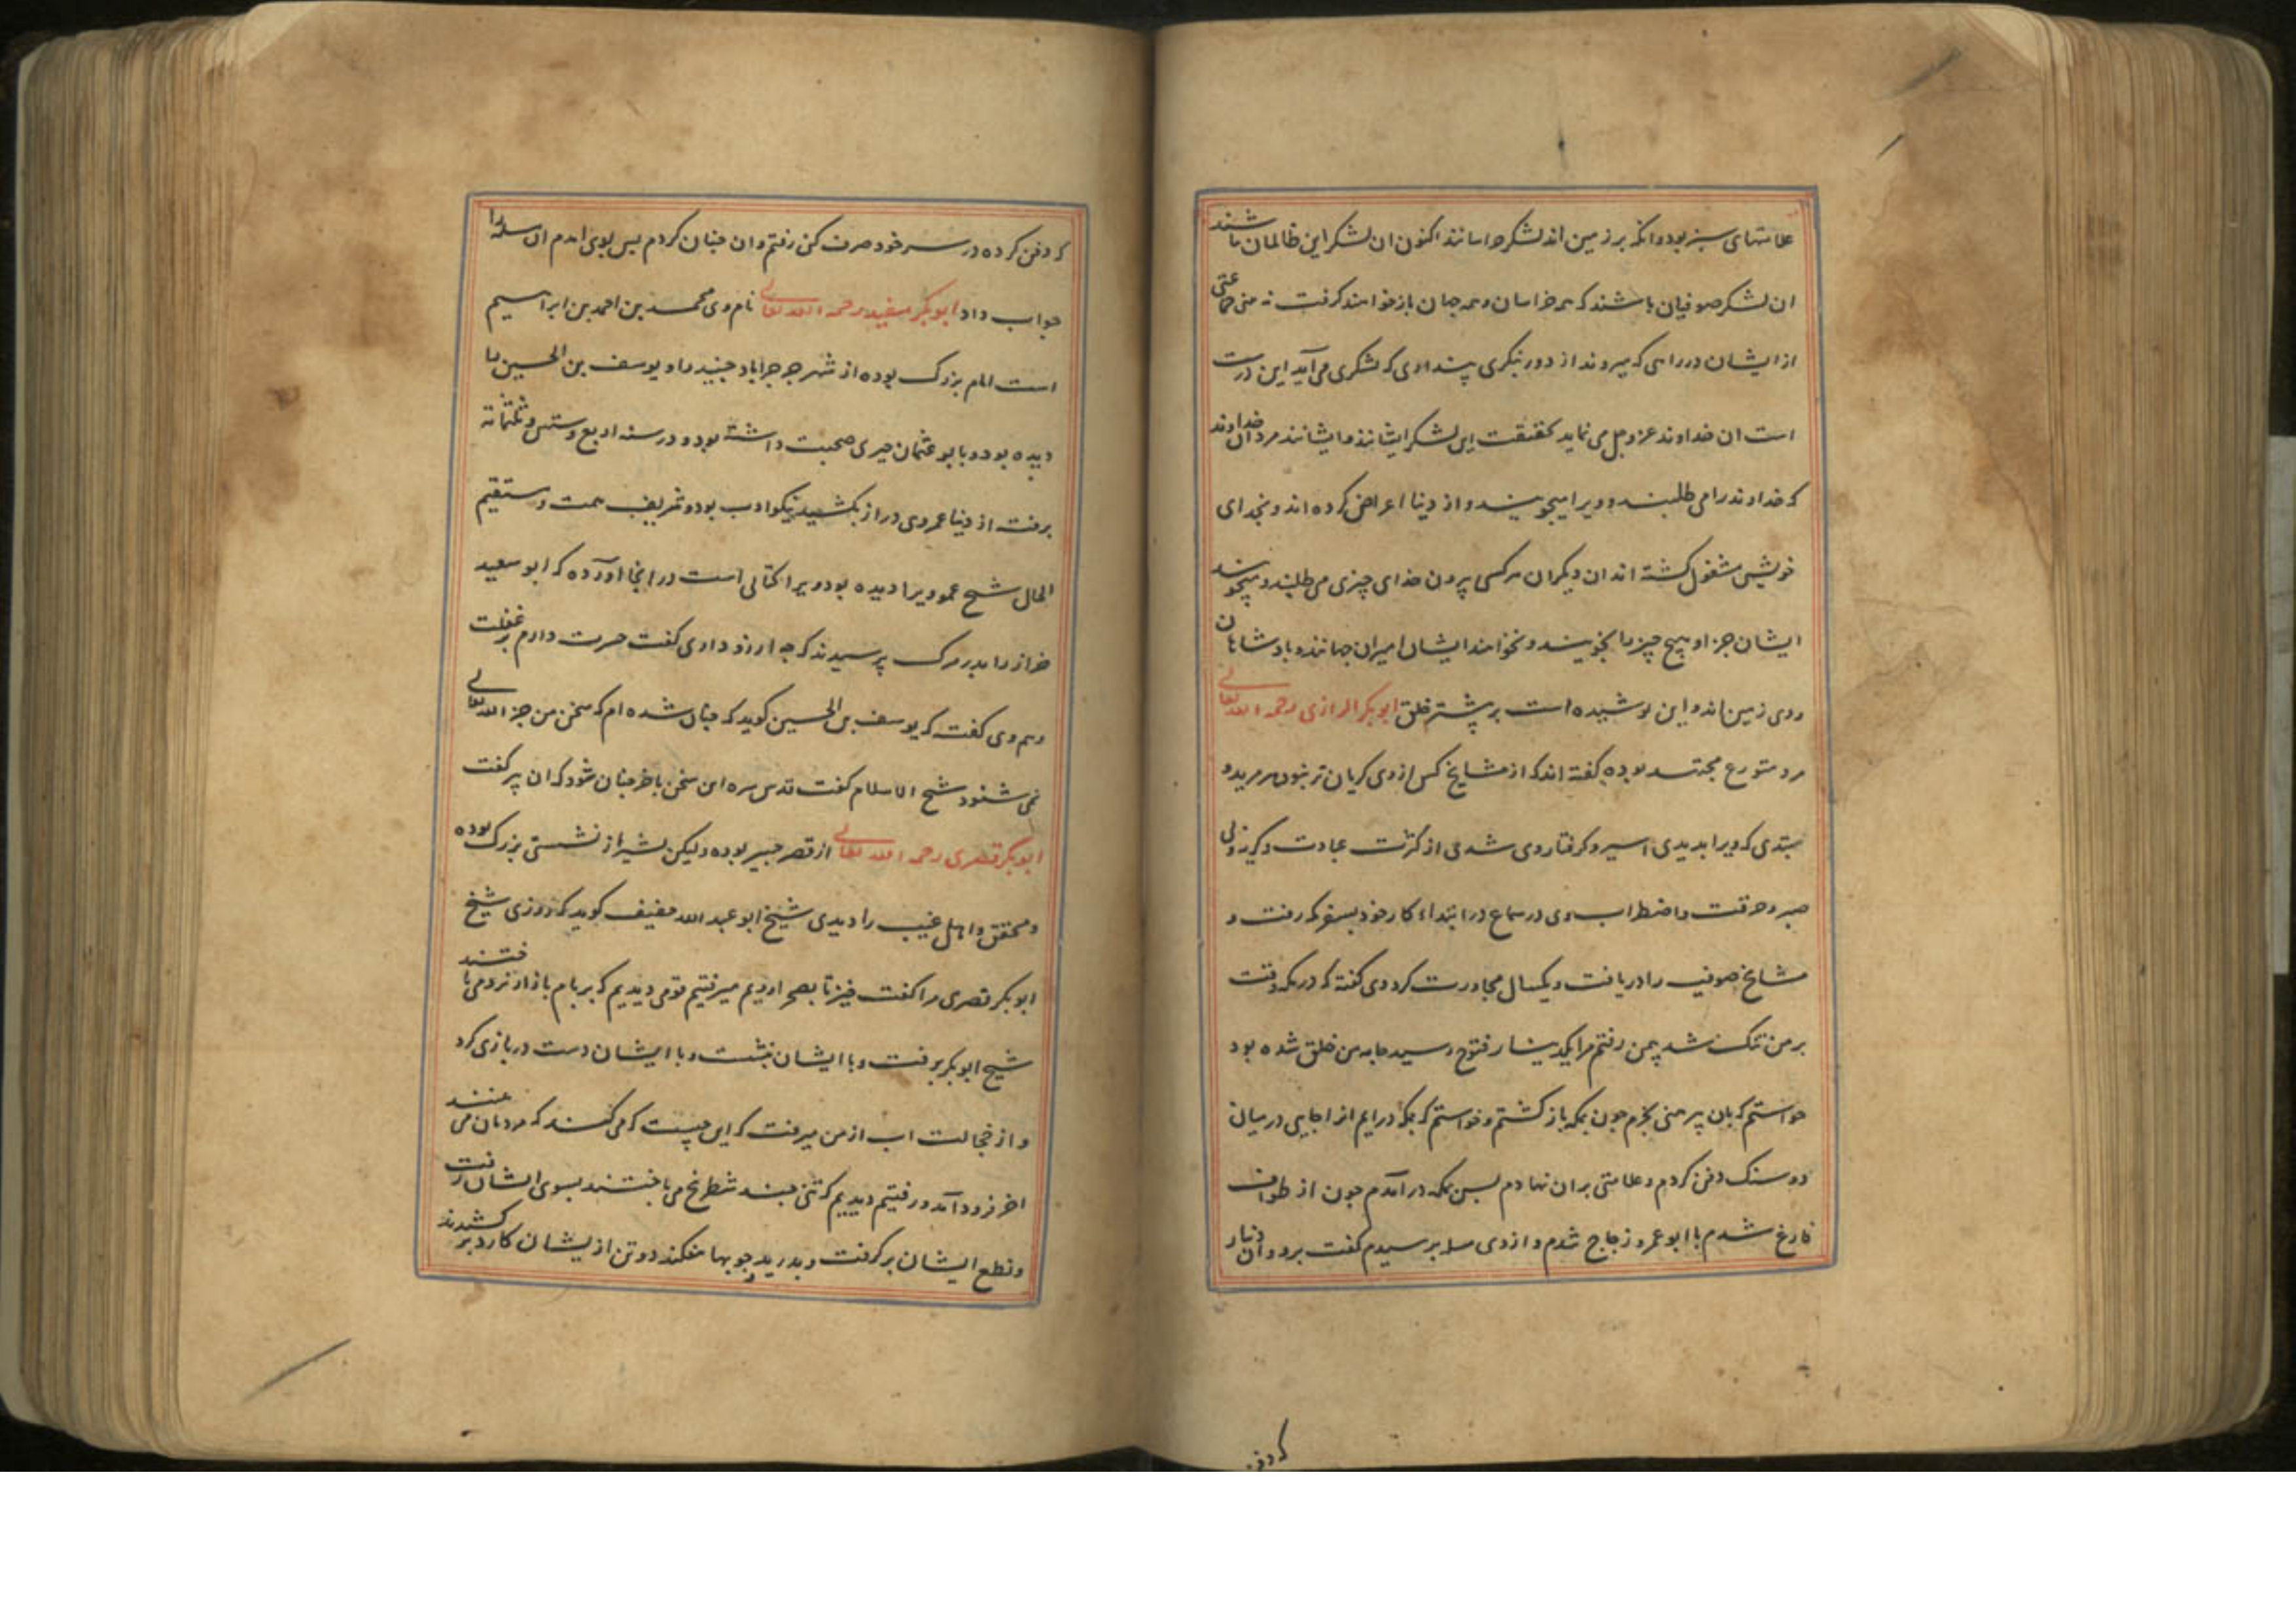 علامتهای سبز بود و انکه بر زمین اند لشکر خراسانند اکنون ان لشکر این ظالمان باشند
ان لشکر صوفیان باشند که همه خراسان و همه جهان باز خواهند کرفت نه جماعتی
از ایشان در راهی که میروند از دور بنکری پنداری که لشکری می آید این درست
است ان خداوند عز و جل می نماید بحقیقت این لشکر ایشانند و ایشانند مردان خداوند
که خداوند را می طلبند و ویرا میجویند و از دنیا اعراض کرده اند و بخدای
خویش مشغول کشته اند ان دیکران هر کسی بدون خدای چیزی می طلبند و میجویند
ایشان جز او هیچ چیز را نجویند و نخواهند ایشان امیران جهانند و بادشاهان
روی زمین اند و این پوشیده است بر بیشتر خلق ابوبکر الرازی رحمه الله تعالی
مرد متورع مجتهد بوده کفته اند که از مشایخ کس از وی کریان تر نبود هر مرید و
مبتدی که ویرا بدیدی اسیر و کرفتار وی شدی از کثرت عبادت و کریه وی
صبر و حرقت و اضطراب وی در سماع در ابتداء کار خود بسفر مکه رفت و
مشایخ صوفیه را دریافت و یکسال مجاورت کرد وی کفته که در مکه وقت
بر من تنک شد بیمن رفتم مرا یکدینار فتوح رسید جامه من خلق شده بود
خواستم که بان پیرهنی بخرم جون بمکه باز کشتم و خواستم که بمکه درایم انرا جایی در میان
دو سنک دفن کردم و علامتی بران نهادم پس بمکه در آمدم جون از طواف
فارغ شدم با ابو عمرو زجاج شدم و از وی مسله پرسیدم کفت برو و ان دینار
که دفن
که دفن کرده در سر خود صرف کن رفتم و ان جنان کردم پس بوی امدم ان مسله را
جواب داد ابوبکر مفید رحمه الله تعالی نام وی محمد بن احمد بن ابراهیم
است امام بزرک بوده از شهر جرجراباد جنید را و یوسف بن الحسین را
دیده بود و با ابو عثمان حیری صحبت داشته بود و در سنه اربع و ستین و ثلثمائة
برفت از دنیا عمر وی دراز بکشید نیکو ادب بود و شریف همت و مستقیم
الحال شیخ عمو ویرا دیده بود ویرا کتابی است در انجا آورده که ابو سعید
خراز را بدر مرک پرسیدند که چه ارزو داری کفت حسرت دارم بر غفلت
و هم وی کفت که یوسف بن الحسین کوید که جنان شده ام که سخن من جز الله تعالی
نمی شنود شیخ الاسلام کفت قدس سره این سخن باخر جنان شود که ان پیر کفت
ابوبکر قصری رحمه الله تعالی از قصر هبیر بوده ولیکن بشیراز نشستی بزرک بوده
و محقق و اهل غیب را دیدی شیخ ابو عبد الله خفیف کوید که روزی شیخ
ابوبکر قصری مرا کفت خیز تا بصحرا رویم میرفتیم قومی دیدیم که بر بام بازار نرد می باختند
شیخ ابوبکر برفت و با ایشان بنشست و با ایشان دست در بازی کرد
و از خجالت اب از من میرفت که این چیست که می کند که مردمان می بینند
اخر فرود آمد و رفتیم دیدیم که تنی چند شطرنج می باختند بسوی ایشان رفت
و نطع ایشان بر کرفت و بدرید و جوبها بیفکند دو تن از یشان کارد بر کشیدند